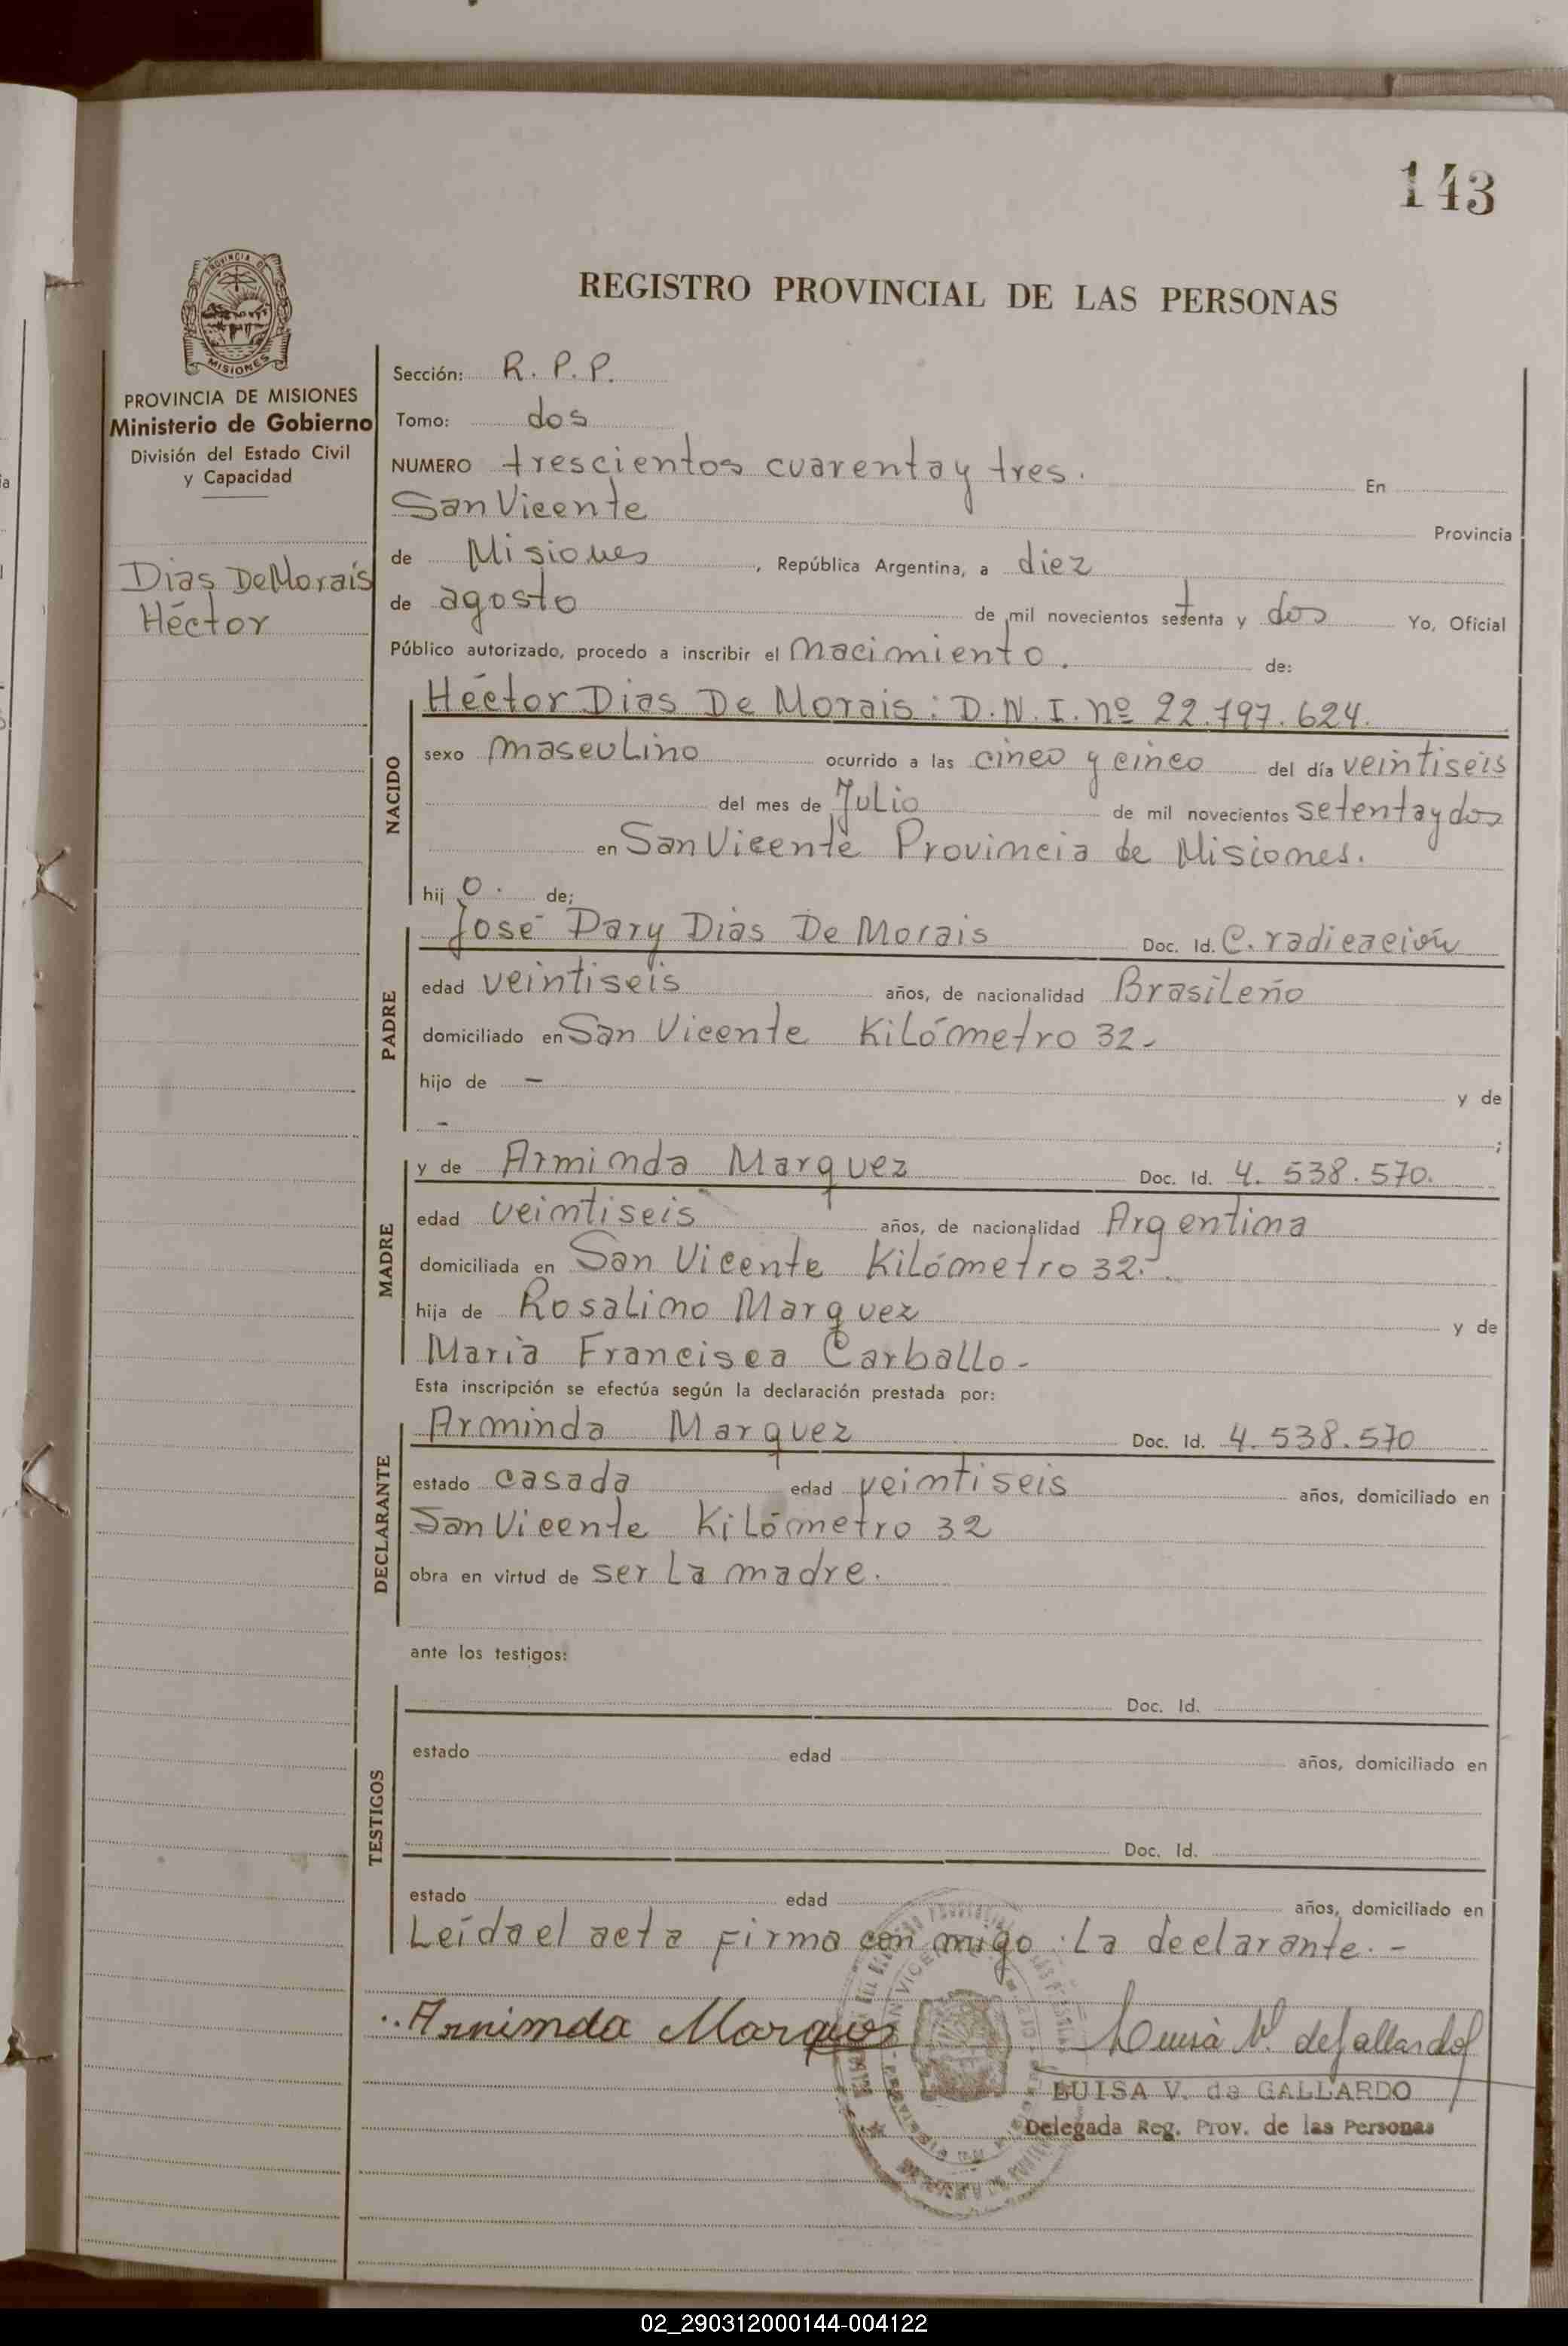 143
REGISTRO PROVINCIAL DE LAS PERSONAS
PROVINCIA DE
MISIONES
PROVINCIA DE MISIONES
Ministerio de Gobierno
División del Estado Civil
y Capacidad
Dias DeMorais
Héctor
Sección: R. P. P.
Tomo: dos
NUMERO trescientos cuarenta y tres. En
San Vicente Provincia
de Misiones, República Argentina, a diez
de agosto de mil novecientos setenta y dos Yo, Oficial
Público autorizado, procedo a inscribir el nacimiento. de:
NACIDO
Héctor Dias De Morais: D.N.I. nº 22.797.624.
sexo masculino ocurrido a las cinco y cinco del día veintiseis
del mes de Julio de mil novecientos setenta y dos
en San Vicente Provincia de Misiones.
hij o. de;
PADRE
José Dary Dias De Morais Doc. Id. C. radicación
edad veintiseis años, de nacionalidad Brasileño
domiciliado en San Vicente Kilómetro 32-
hijo de - y de
- ;
MADRE
y de Arminda Marquez Doc. Id. 4. 538. 570.
edad veintiseis años, de nacionalidad Argentina
domiciliada en San Vicente Kilómetro 32-.
hija de Rosalino Marquez y de
Maria Francisca Carballo-
Esta inscripción se efectúa según la declaración prestada por:
DECLARANTE
Arminda Marquez Doc. Id. 4. 538. 570
estado casada edad veintiseis años, domiciliado en
San Vicente Kilómetro 32
obra en virtud de ser La madre.
ante los testigos:
TESTIGOS
Doc. Id.
estado edad años, domiciliado en
Doc. Id.
estado edad años, domiciliado en
Leída el acta firma con migo: La declarante.-
Arminda Marques Luisa V. de Gallardo
LUISA V. de GALLARDO
Delegada Reg. Prov. de las Personas
02_290312000144-004122